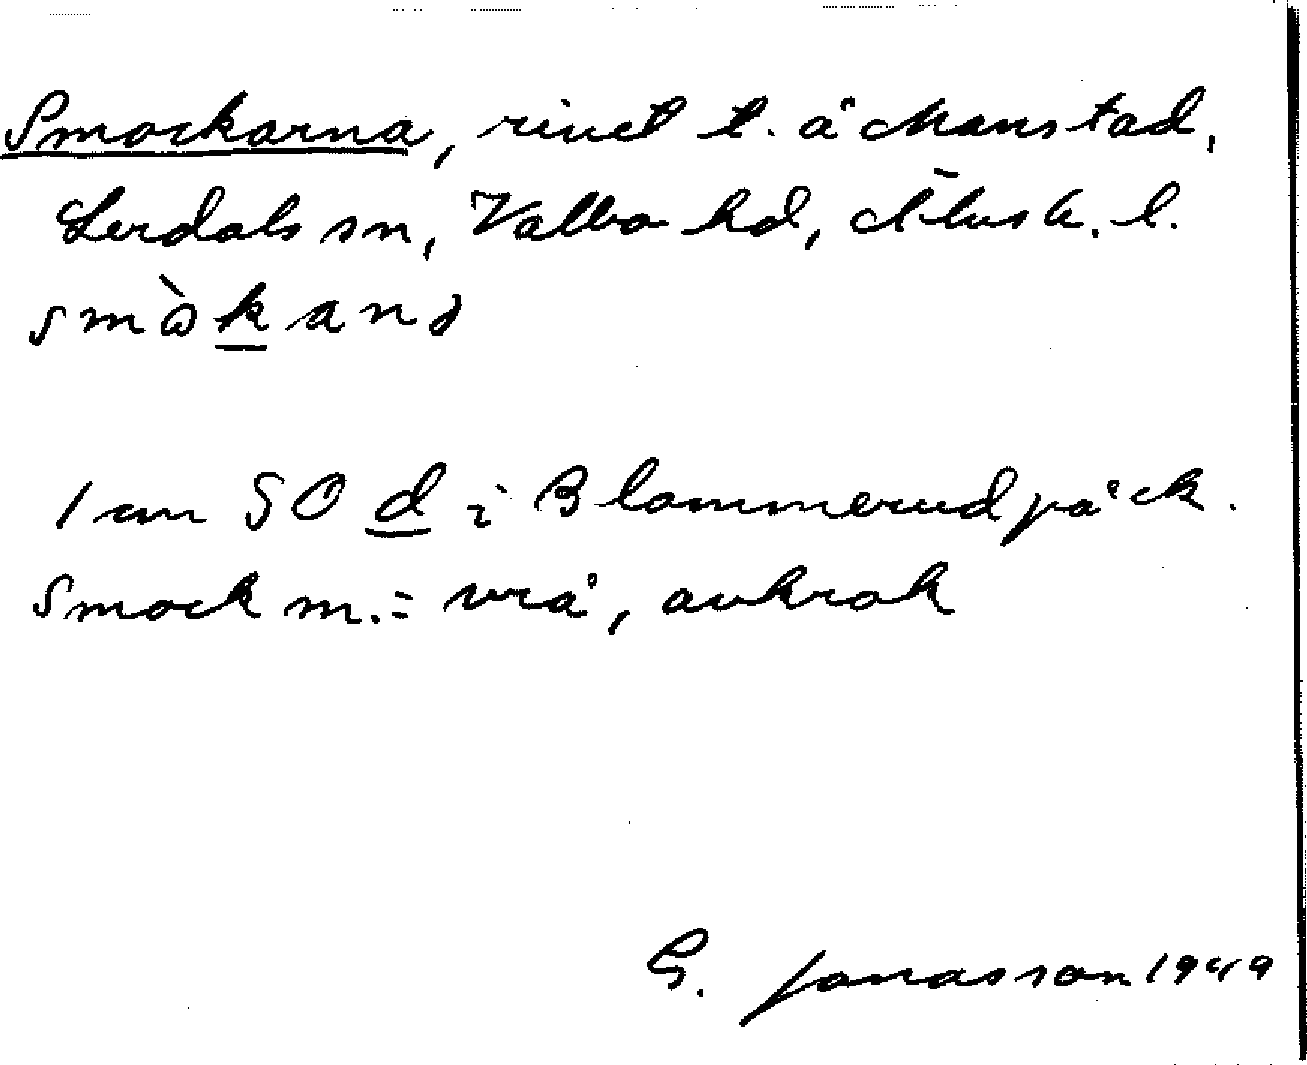 Smockarna, rivet t. å Manstad,
Lerdals sn, Valbo hd, Älvsb. l.
smɷ̀kanə
1 cm SO d i Blommerud på ek.
Smock m. = vrå, avkrok
G. Jonasson 1949